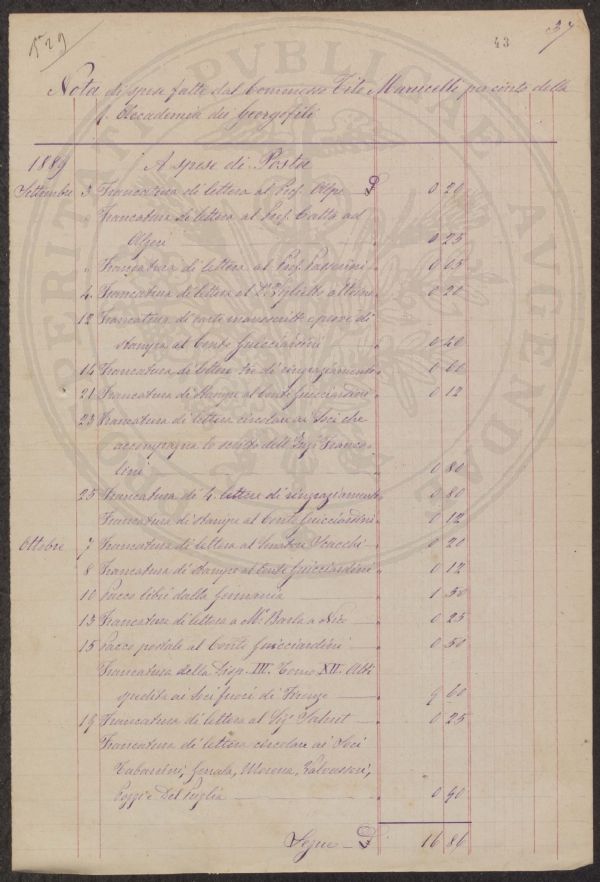 529
43
37
Nota di spese fatte dal Commesso Tito Marucelli per conto della
R. Accademia dei Georgofili
1889 A spese di Posta
Settembre 3 Francatura di lettera al Prof. Alpe £ 0 20
" Francatura di lettera al Prof. Caltz ad
Algeri 0 25
" Francatura di lettera al Prof. Passerini 0 05
4 Francatura di lettera al 0 20
12 Francatura di carte manoscritte e prove di
stampa al Conte Guicciardini 0 40
14 Francatura di lettere tre di ringraziamento 0 60
21 Francatura di stampe al Conte Guicciardini 0 12
23 Francatura di lettera circolare ai Soci che
accompagna lo scritto dell'Ing. Franco
lini 0 80
25 Francatura di 4 lettere di ringraziamento 0 80
Francatura di stampe al Conte Guicciardini 0 12
Ottobre 7 Francatura di lettera al Senatore Scacchi 0 20
8 Francatura di stampe al Conte Guicciardini 0 12
10 Pacco libri dalla Germania 1 50
13 Francatura di lettera a Mr. Barla a Nizza 0 25
15 Pacco postale al Conte Guicciardini 0 50
Francatura della Disp. III. Tomo XII. Atti
spedita ai Soci fuori di Firenze 9 60
19 Francatura di lettera al Sig. Salent 0 25
Francatura di lettera circolare ai Soci
Tabarrini, Morena,
Poggi e Del Puglia 0 90
Segue £ 16 86
PROSPERITATI PVBLICAE AVGENDAE